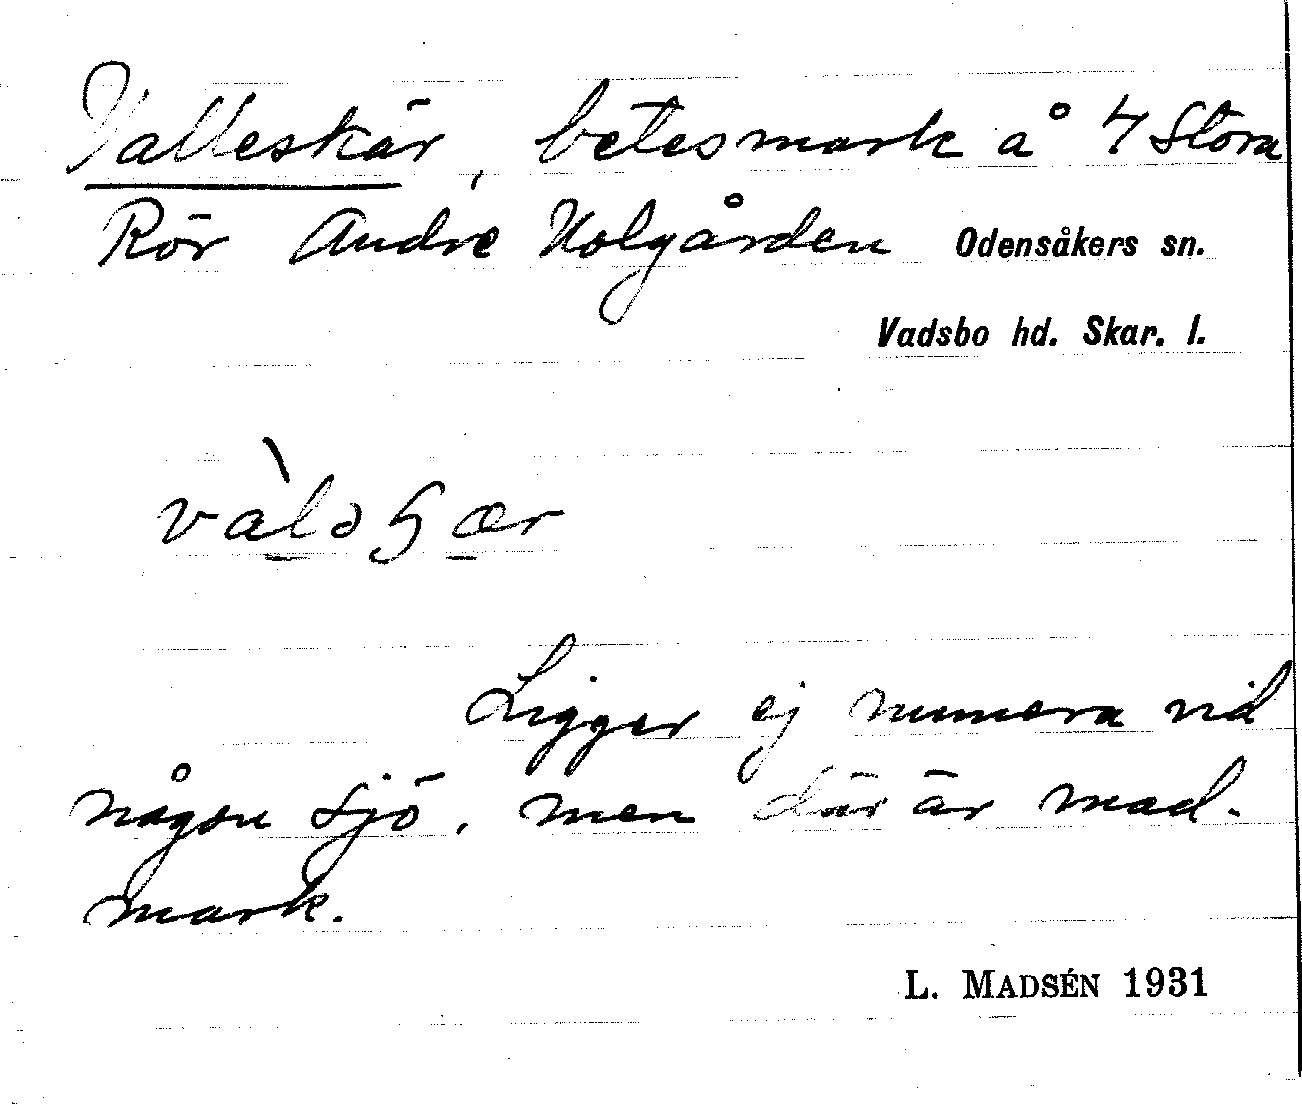 Valleskär, betesmark å 4 Stora
Rör Andre Holgården Odensåkers sn.
Vadsbo hd. Skar. l.
Ligger ej numera vid
någon sjö, men där är mad-
mark.
L. MADSÉN 1931